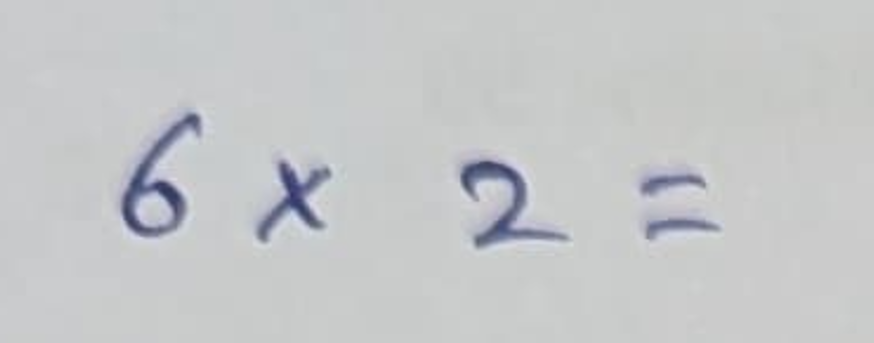 6 × 2 =